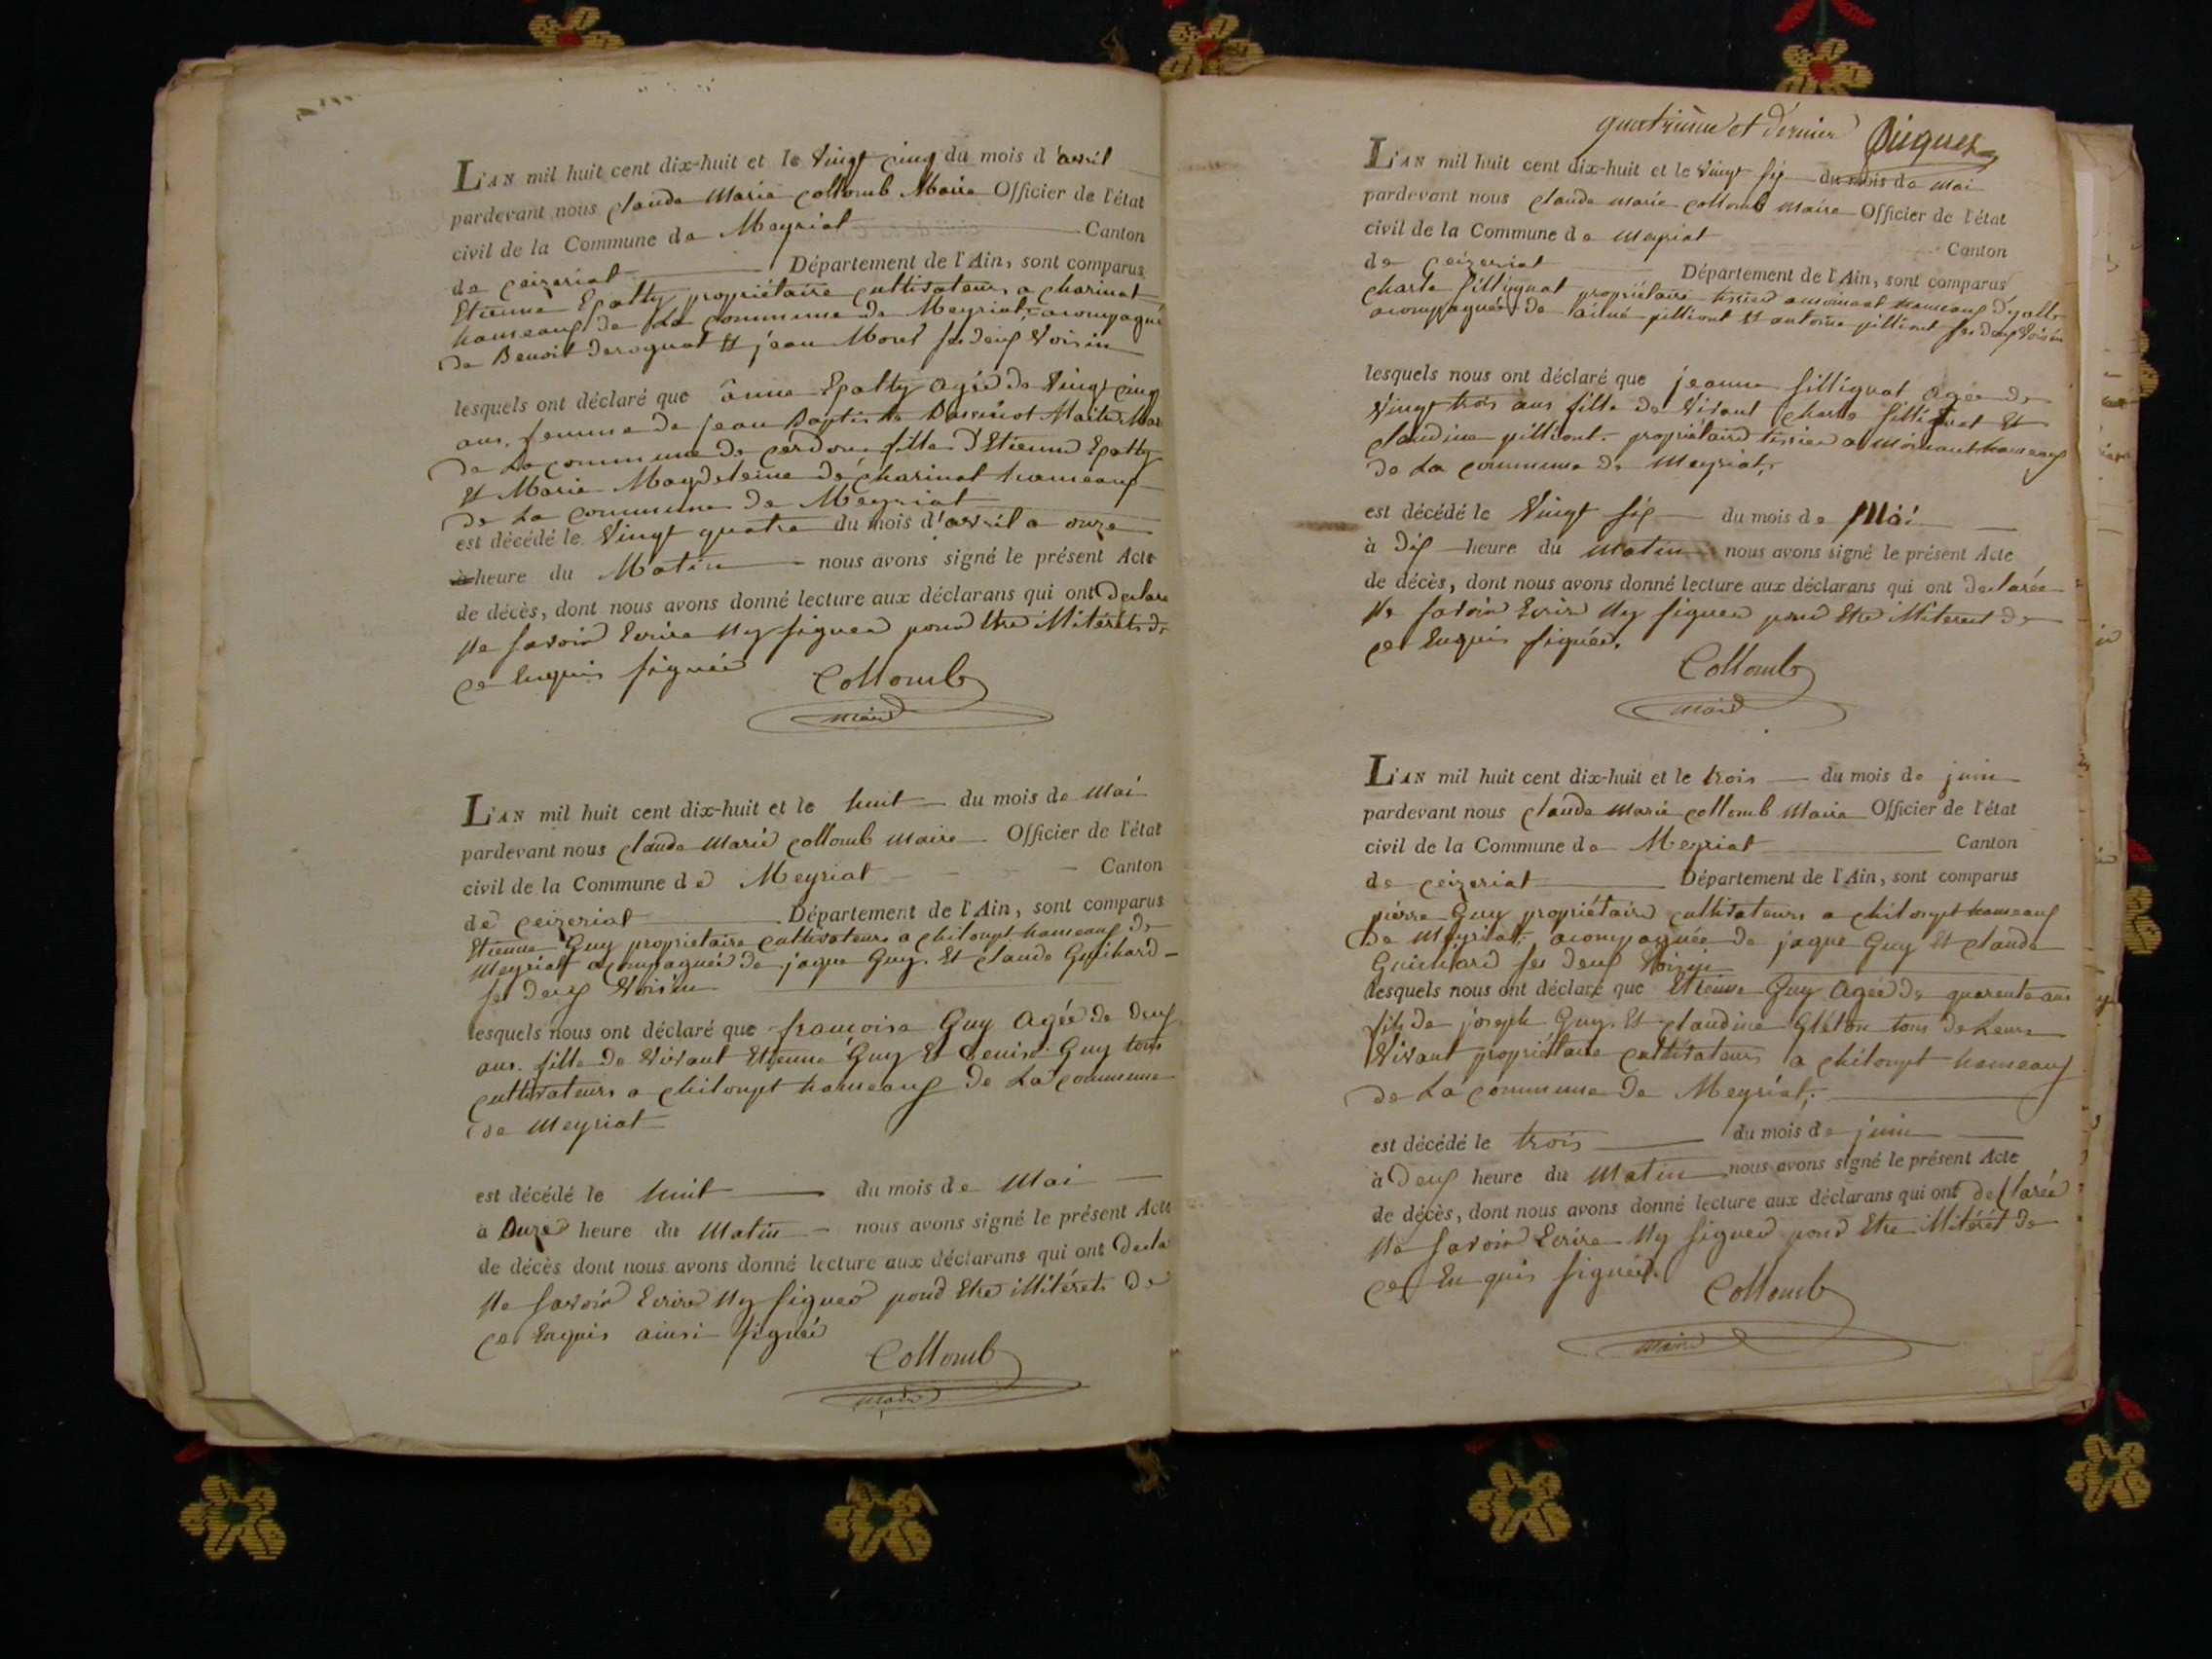 L'AN mil huit cent dix-huit et le Vingt cinq du mois d'avril
pardevant nous claude Marie collomb Maire Officier de l'état
civil de la Commune de Meyriat Canton
de ceizeriat Département de l'Ain, sont comparus
Etienne Epalty propriétaire cultivateurs a charinat
hameaux de La commune de Meyriat, acompagné
de Benoit derognat Et jean Morel ses deux Voisin
lesquels ont déclaré que anne Epalty agée de Vingt cinq
ans. femme de jean Baptiste
de La commune de cerdon fille d'Etienne Epalty
Et Marie Magdeleine de charinat hameaux
de La commune de Meyriat
est décédé le Vingt quatre du mois d'avril a onze
à heure du Matin nous avons signé le présent Acte
de décès, dont nous avons donné lecture aux déclarans qui ont declare
Ne savoir Ecrire Ny signer pour Etre illiterets de
ce Enquis signée
Collomb
maire
L'AN mil huit cent dix-huit et le huit du mois de Mai
pardevant nous claude Marie collomb maire Officier de l'état
civil de la Commune de Meyriat Canton
de ceizeriat Département de l'Ain, sont comparus
Etienne Guy proprietaire cultivateurs a chiloupt hameaux de
Meyriat acompagnée de jaque Guy. Et claude Guichard
ses deux Voisin
lesquels nous ont déclaré que francoise Guy Agée de deux
ans. fille de Vivant Etienne Guy Et Denise Guy tous
cultivateurs a chiloupt hameaux de La commune
de Meyriat
est décédé le huit du mois de Mai
à Onze heure du Matin nous avons signé le présent Acte
de décès dont nous avons donné lecture aux déclarans qui ont decla
Ne savoir Ecrire Ny signer pour Etre illitérets de
ce Enquis ainsi signée
Collomb
maire
quatrième et dernier
L'AN mil huit cent dix-huit et le Vingt six du mois de Mai
pardevant nous claude marie collomb maire Officier de l'état
civil de la Commune de Meyriat Canton
de ceizeriat Département de l'Ain, sont comparus
charle sillignat propriétaire tissier hameaux
acompagnée de pilliont Et antoine pilliont ses deux Voisin
lesquels nous ont déclaré que jeanne sillignat Agée de
Vingt trois ans fille de Vivant charle sillignat Et
claudine pilliont. propriétaire tissier a hameaux
de La commune de Meyriat,
est décédé le Vingt six du mois de Mai
à dix heure du Matin nous avons signé le présent Acte
de décès, dont nous avons donné lecture aux déclarans qui ont declarée
Ne savoir Ecrire Ny signer pour Etre illiteret de
ce Enquis signée.
Collomb
maire
L'AN mil huit cent dix-huit et le trois du mois de juin
pardevant nous claude Marie collomb Maire Officier de l'état
civil de la Commune de Meyriat Canton
de ceizeriat Département de l'Ain, sont comparus
pierre Guy propriétaire cultivateurs a chiloupt hameaux
de Meyriat. acompagnée de jaque Guy Et claude
Guichard ses deux Voisin
lesquels nous ont déclaré que Etienne Guy Agée de quarente ans
fils de joseph Guy. Et claudine Gléton tous de Leurs
Vivant propriétaire cultivateurs a chiloupt hameaux
de La commune de Meyriat,
est décédé le trois du mois de juin
à Deux heure du Matin nous avons signé le présent Acte
de décès, dont nous avons donné lecture aux déclarans qui ont declarée
Ne savoir Ecrire Ny signer pour Etre illitérét de
ce Enquis signée.
Collomb
maire